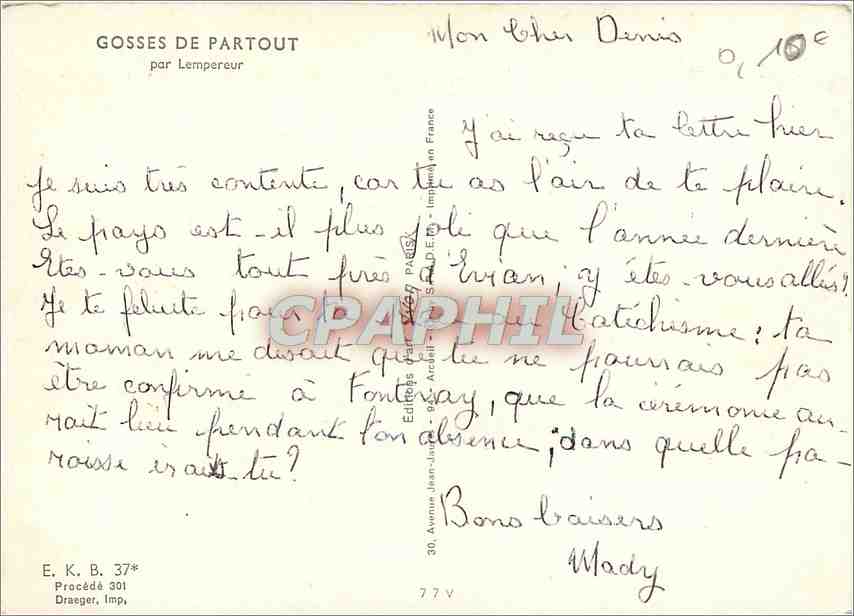 GOSSES DE PARTOUT
par Lempereur
Mon Cher Denis
0,10€
J'ai reçu ta lettre hier
je suis très contente, car tu as l'air de te plaire.
Le pays est-il plus joli que l'année dernière
Etes-vous tout près d'Evian; y êtes-vous allés?
Je te felicite pour ta place au Catéchisme: ta
maman me disait que tu ne pourrais pas
être confirmé à Fontenay, que la cérémonie au-
rait lieu pendant ton absence; dans quelle pa-
roisse iras-tu?
Bons baisers
Mady
Editions d'art Yvon PARIS
30, Avenue Jean-Jaurès - 94 Arcueil - (S.P.A.D.E.M.) - Imprimé en France
CPAPHIL
E. K. B. 37*
Procédé 301
Draeger, Imp,
77V